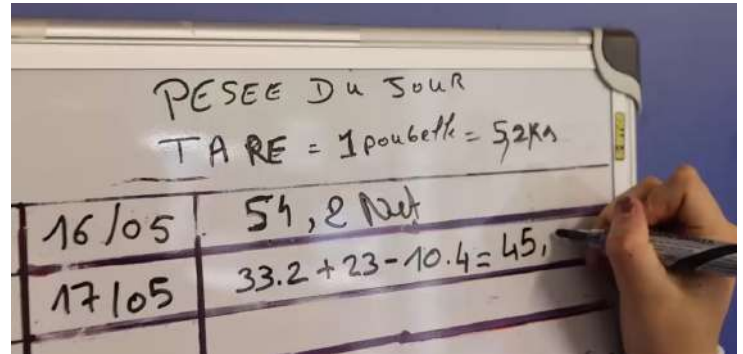 PESEE Du JOUR
TARE = 1 poubelle = 5,2Kg
16/05 54,2 Net
17/05 33.2 + 23 - 10.4 = 45,